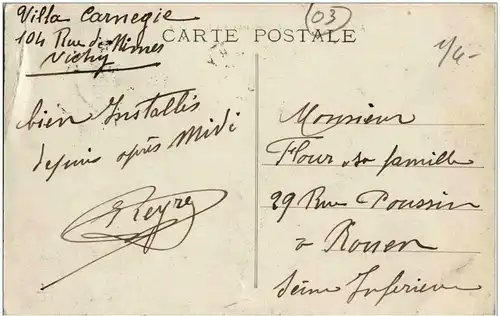 Villa Carnegie
104 Rue de Nimes
Vichy
CARTE POSTALE
03
bien Installés
depuis après Midi
Monsieur
Flour & sa famille
29 Rue Poussin
à Rouen
Seine Inférieure